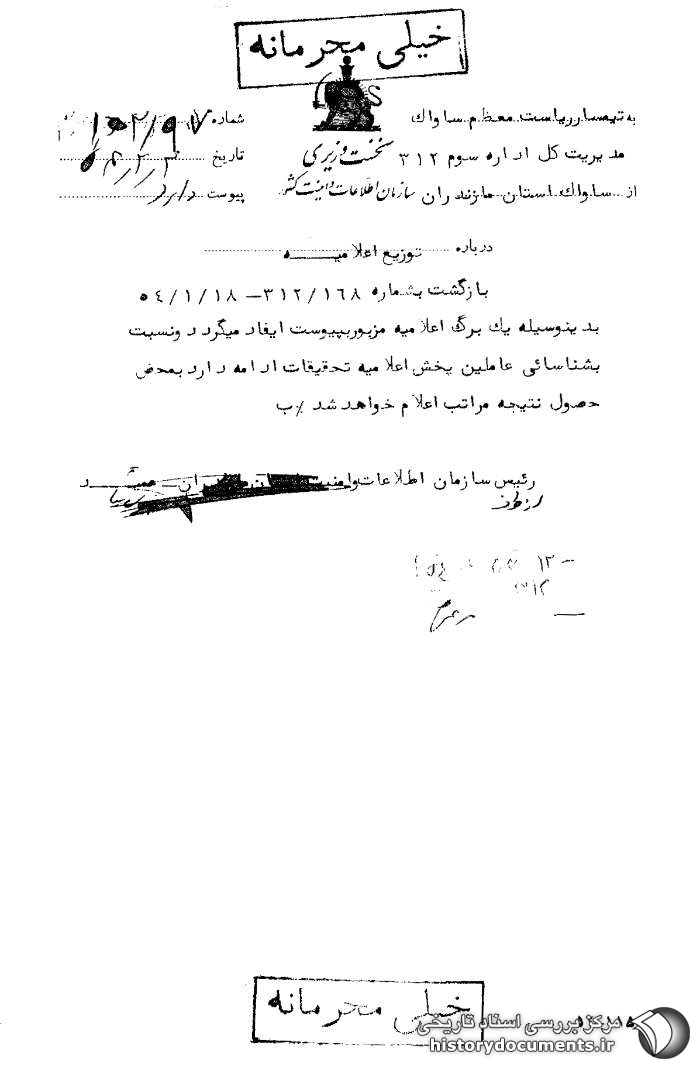 خیلی محرمانه
به تیمسار ریاست معظم ساواک
شماره
مدیریت کل اداره سوم ۳۱۲
نخست وزیری
تاریخ
از ساواک استان مازندران
سازمان اطلاعات و امنیت کشور
پیوست دارد
درباره توزیع اعلامیه
بازگشت بشماره ۳۱۲/۱۶۸ – ۵٤/۱/۱۸
بدینوسیله یك برگ اعلامیه مزبور بپیوست ایفاد میگردد ونسبت
بشناسائی عاملین پخش اعلامیه تحقیقات ادامه دارد بمحض
حصول نتیجه مراتب اعلام خواهد شد ٪ب
رئیس سازمان اطلاعات وامنیت
از طرف
۳۱۲
خیلی محرمانه
مرکز بررسی اسناد تاریخی
historydocuments.ir